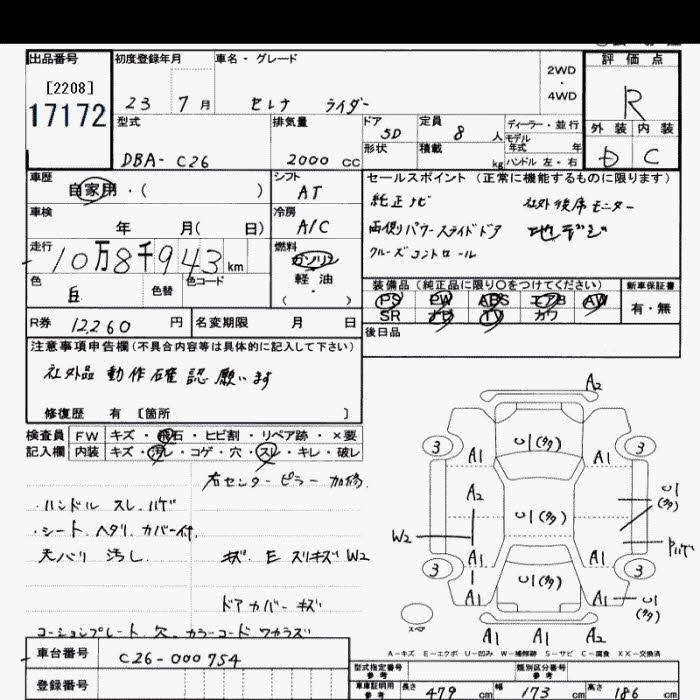 出品番号 初度登録年月 車名・グレード 2WD・4WD 評価点
[2208]
17172
23 7月 セレナ ライダー R
型式 排気量 ドア 5D 定員 8人 ディーラー・並行 外装 内装
DBA-C26 2000cc 形状 積載 kg モデル年式 年 ハンドル 左・右 D C
車歴 シフト セールスポイント (正常に機能するものに限ります)
自家用・( ) AT 純正ナビ 社外後席モニター
車検 冷房 両側パワースライドドア 地デジ
年 月( 日) A/C クルーズコントロール
走行 燃料
10万8千943km ガソリン
色 色替 色コード 軽油 装備品 (純正品に限り○をつけてください) 新車保証書
白 (・) PS PW ABS エアB AW 有・無
R券 12,260円 名変期限 月 日 SR ナビ TV カワ
後日品
注意事項申告欄(不具合内容等は具体的に記入して下さい)
社外品 動作確認願います
修復歴 有 [箇所 ]
検査員 FW キズ・飛石・ヒビ割・リペア跡・×要
記入欄 内装 キズ・汚レ・コゲ・穴・スレ・キレ・破レ
右センターピラー 加修.
・ハンドル スレ.ハゲ
・シート.ヘタリ.カバー付.
天バリ 汚し キズ.E スリキズ W2
ドアカバー キズ
コーションプレート.欠.カラーコード ワカラズ
A2
U1(タタ)
3 A1 A1 3
A2 U1(タタ) U1(タタ)
W2 Pハゲ
A1 A1
3 U1(タタ) 3
A1 A1 U1(タタ)
スペア A1 A1 A2
A-キズ E-エクボ U-凹み W-補修跡 S-サビ C-腐食 XX-交換済
車台番号 C26-000754
型式指定番号 参考 類別区分番号 参考
登録番号 車庫証明用 参考 長さ 479cm 幅 173cm 高さ 186cm